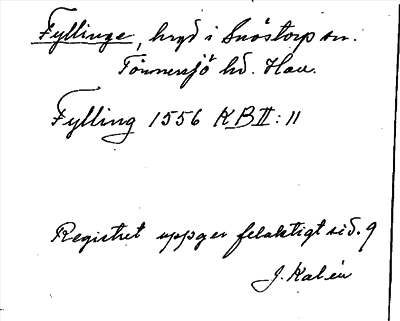 Fyllinge, bryd i Snöstorp sn.
Tönnersjö hd. Hall.
Fylling 1556 KB II: 11
Registret uppger felaktigt sid. 9
J. Kalén